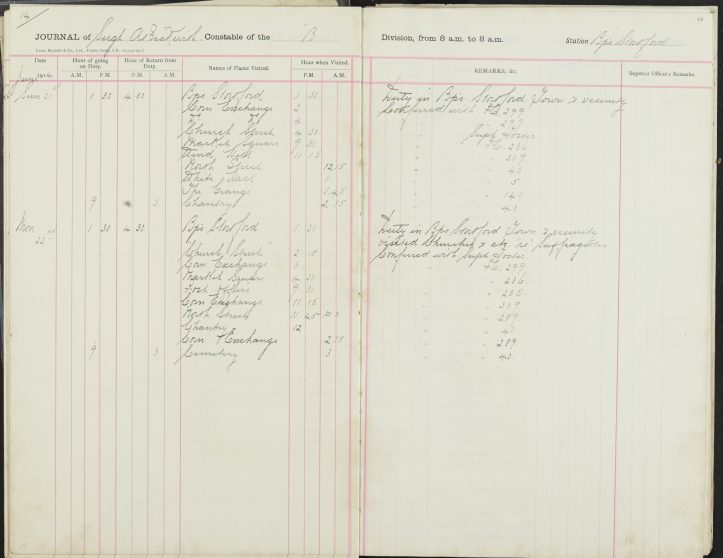 14
JOURNAL of Sergt A Beckwith Constable of the "B"
Date
Hour of going on Duty.
Hour of Return from Duty.
Names of Places Visited.
Hour when Visited.
June 1914
A.M. P.M. P.M. A.M. P.M. A.M.
Sun 21st 1 30 4 30 Bps Stortford 1 30
Corn Exchange 2
Do Do 4
Church Street 4 30
Market Square 9 30
Wind Hill 11 15
North Street 12 15
White Hall 1
The Grange 1 45
9 3 Chantry 2 15
Mon 22nd 1 30 4 30 Bps Stortford 1 30
Church Street 2 15
Corn Exchange 3
Market Square 4 20
Post Office 9 30
Corn Exchange 11 15
North Street 11 45
Chantry 12
Corn Exchange 2 15
9 3 Cemetery 3
Division, from 8 a.m. to 8 a.m. Station Bps Stortford
REMARKS, &c.
Superior Officer's Remarks.
Duty in Bps Stortford Town & vicinity
Conferred with P.C. 299
Supt Foster
P.C. 236
319
43
5
141
43
Duty in Bps Stortford Town & vicinity
visited Churches & etc. re Suffragettes
Conferred with Supt Foster
P.C. 299
236
235
319
289
41
289
43